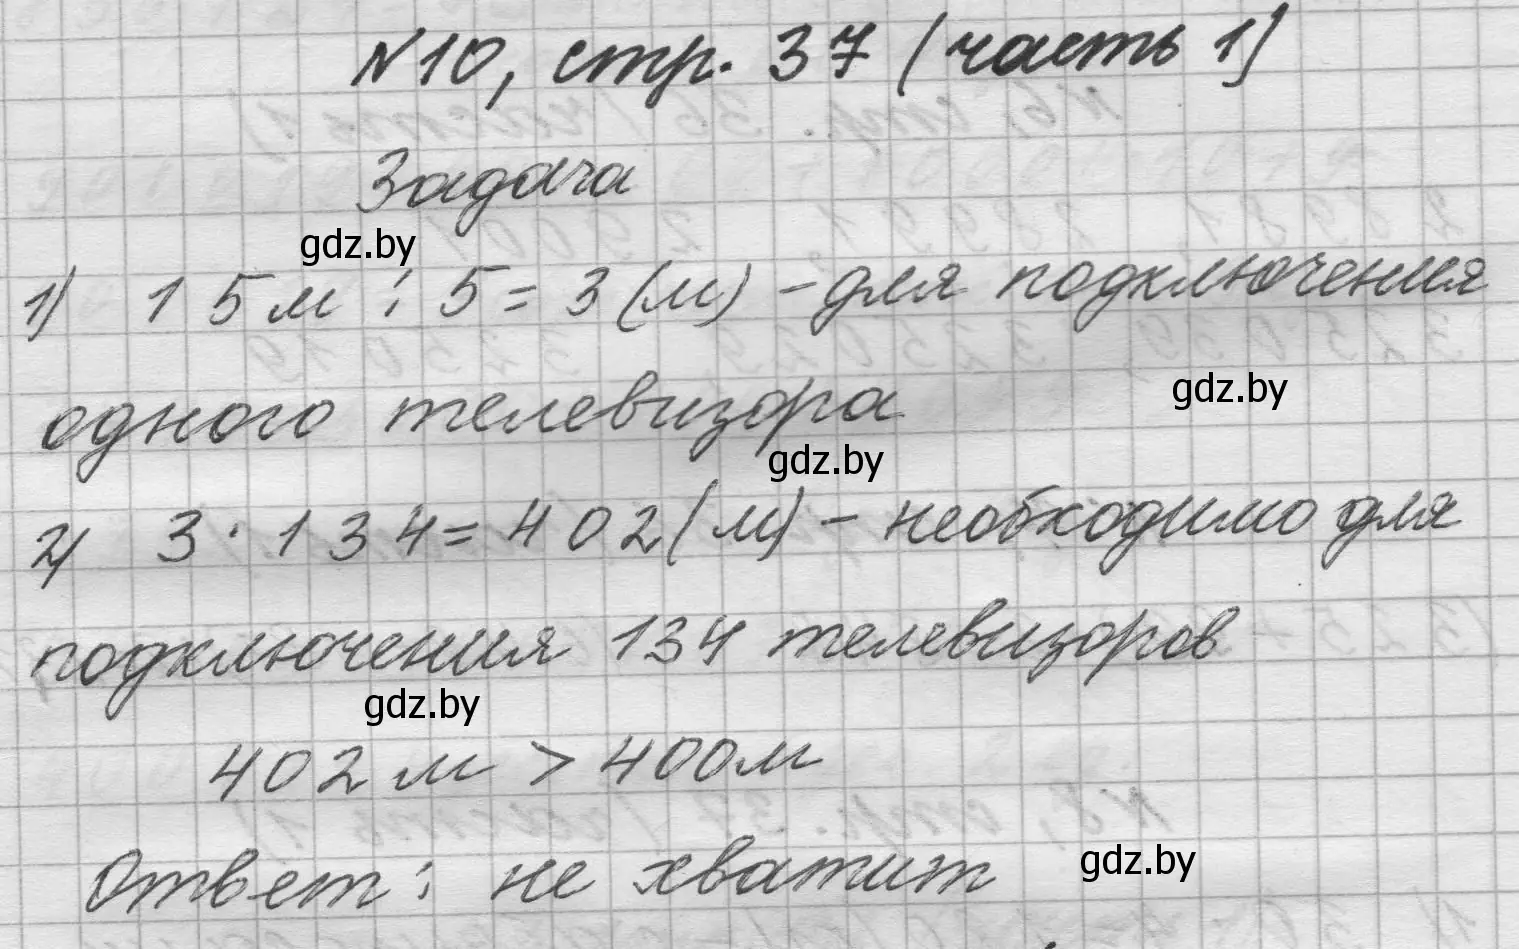 №10, стр. 37 (часть 1)
Задача
gdz.by
1) 15м : 5 = 3 (м) - для подключения
gdz.by
одного телевизора
gdz.by
2) 3 · 134 = 402 (м) - необходимо для
подключения 134 телевизоров
gdz.by
402 м > 400м
Ответ: не хватит
gdz.by